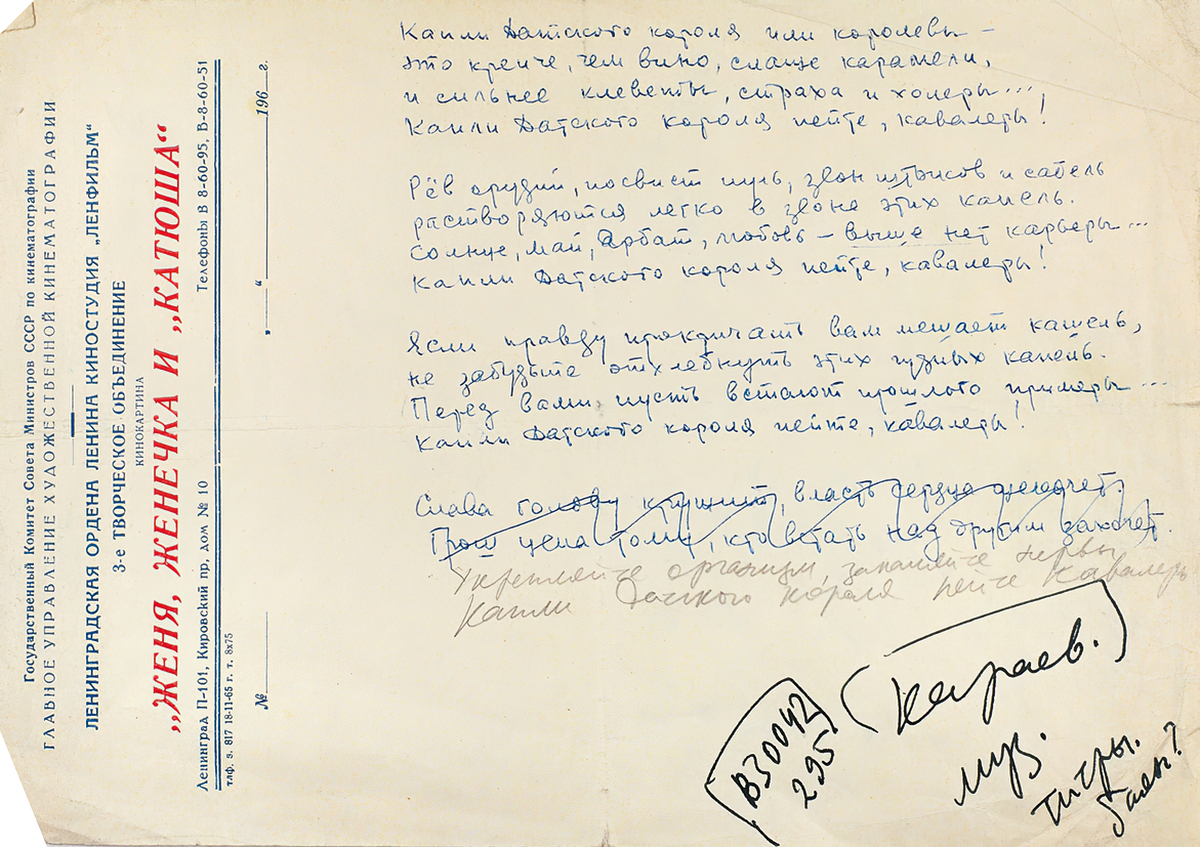 Государственный Комитет Совета Министров СССР по кинематографии
ГЛАВНОЕ УПРАВЛЕНИЕ ХУДОЖЕСТВЕННОЙ КИНЕМАТОГРАФИИ
ЛЕНИНГРАДСКАЯ ОРДЕНА ЛЕНИНА КИНОСТУДИЯ „ЛЕНФИЛЬМ“
3-е ТВОРЧЕСКОЕ ОБЪЕДИНЕНИЕ
КИНОКАРТИНА
„ЖЕНЯ, ЖЕНЕЧКА И „КАТЮША“
Ленинград П-101, Кировский пр, дом № 10 Телефоны В 8-60-95, В-8-60-51
тлф. з. 817 18-11-65 г. т. 8x75
№ „ “ 196 г.
Капли Датского короля или королевы –
это крепче, чем вино, слаще карамели,
и сильнее клеветы, страха и холеры...,
Капли Датского короля пейте, кавалеры!
Рёв орудий, посвист пуль, звон штыков и сабель
растворяются легко в звоне этих капель.
Солнце, май, Арбат, любовь – выше нет карьеры...
Капли Датского короля пейте, кавалеры!
Если правду прокричать вам мешает кашель,
не забудьте отхлебнуть этих чудных капель.
Перед вами пусть встают прошлого примеры...
Капли Датского короля пейте, кавалеры!
Слава голову кружит, власть сердца щекочет.
Грош цена тому, кто встать над другим захочет.
Укрепляйте организм, закаляйте нервы
Капли Датского короля пейте кавалеры
В30042
295
муз.
титры.